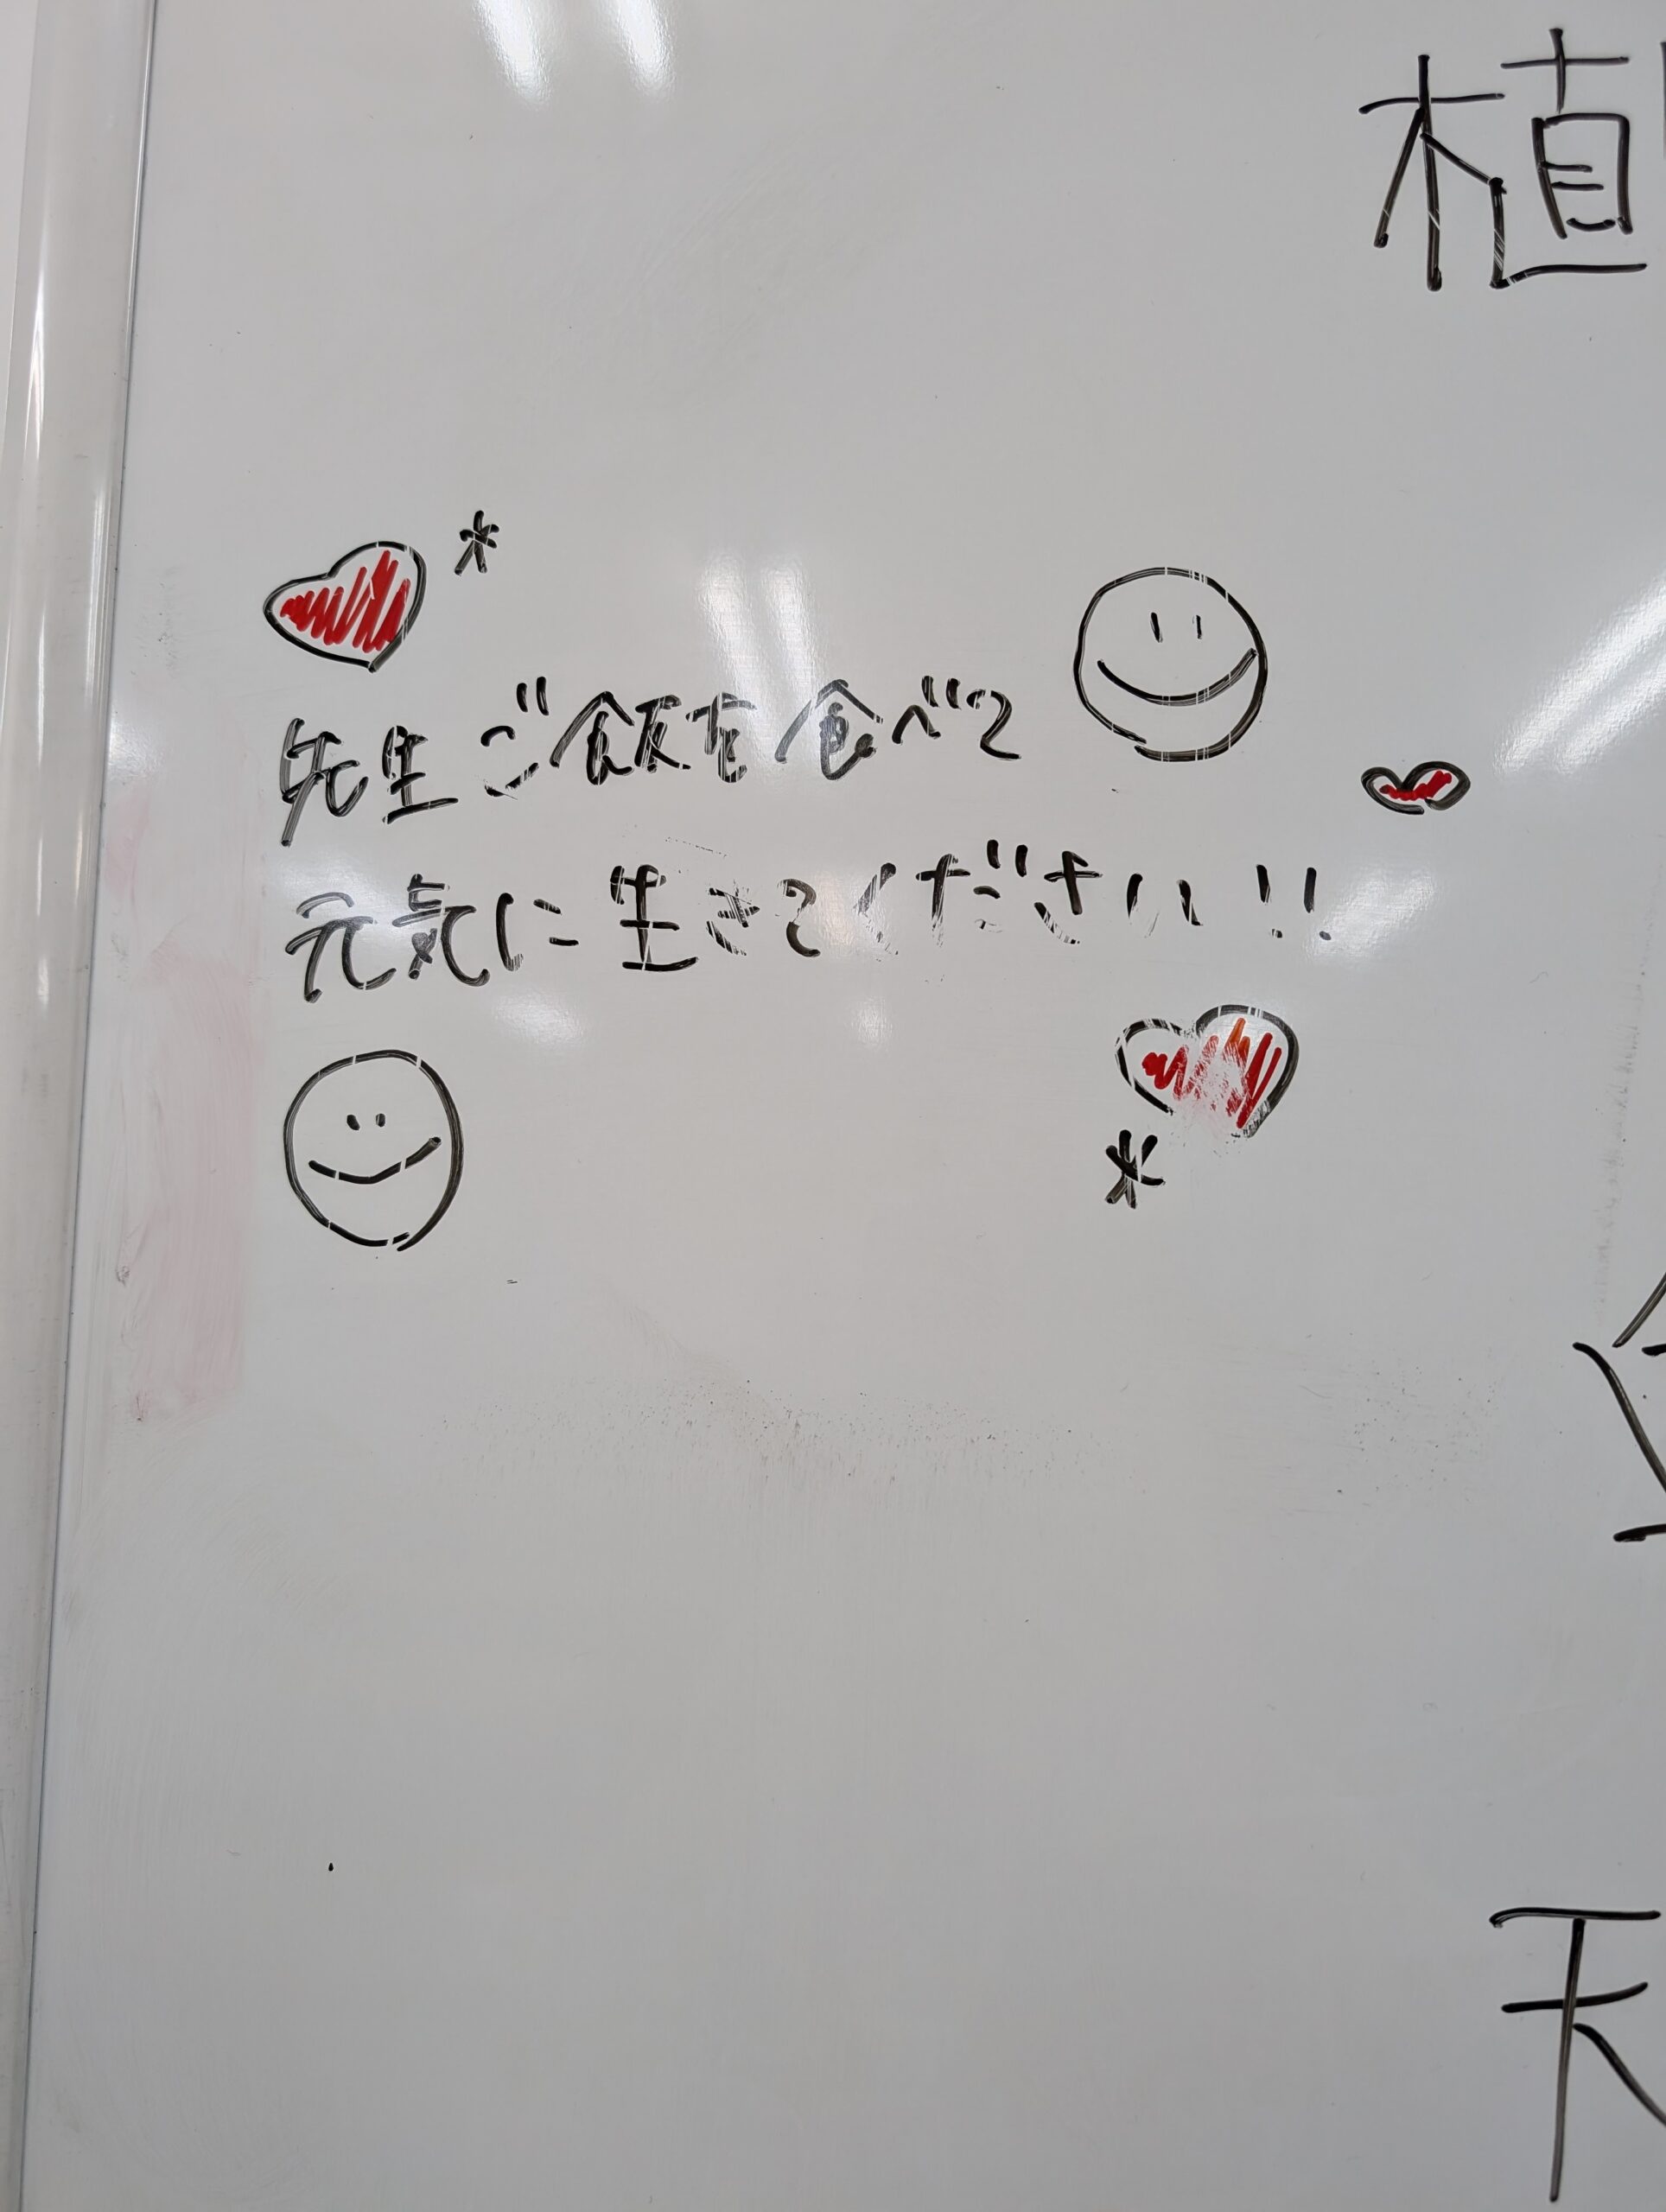 植
先生ご飯を食べて
元気に生きてください!!